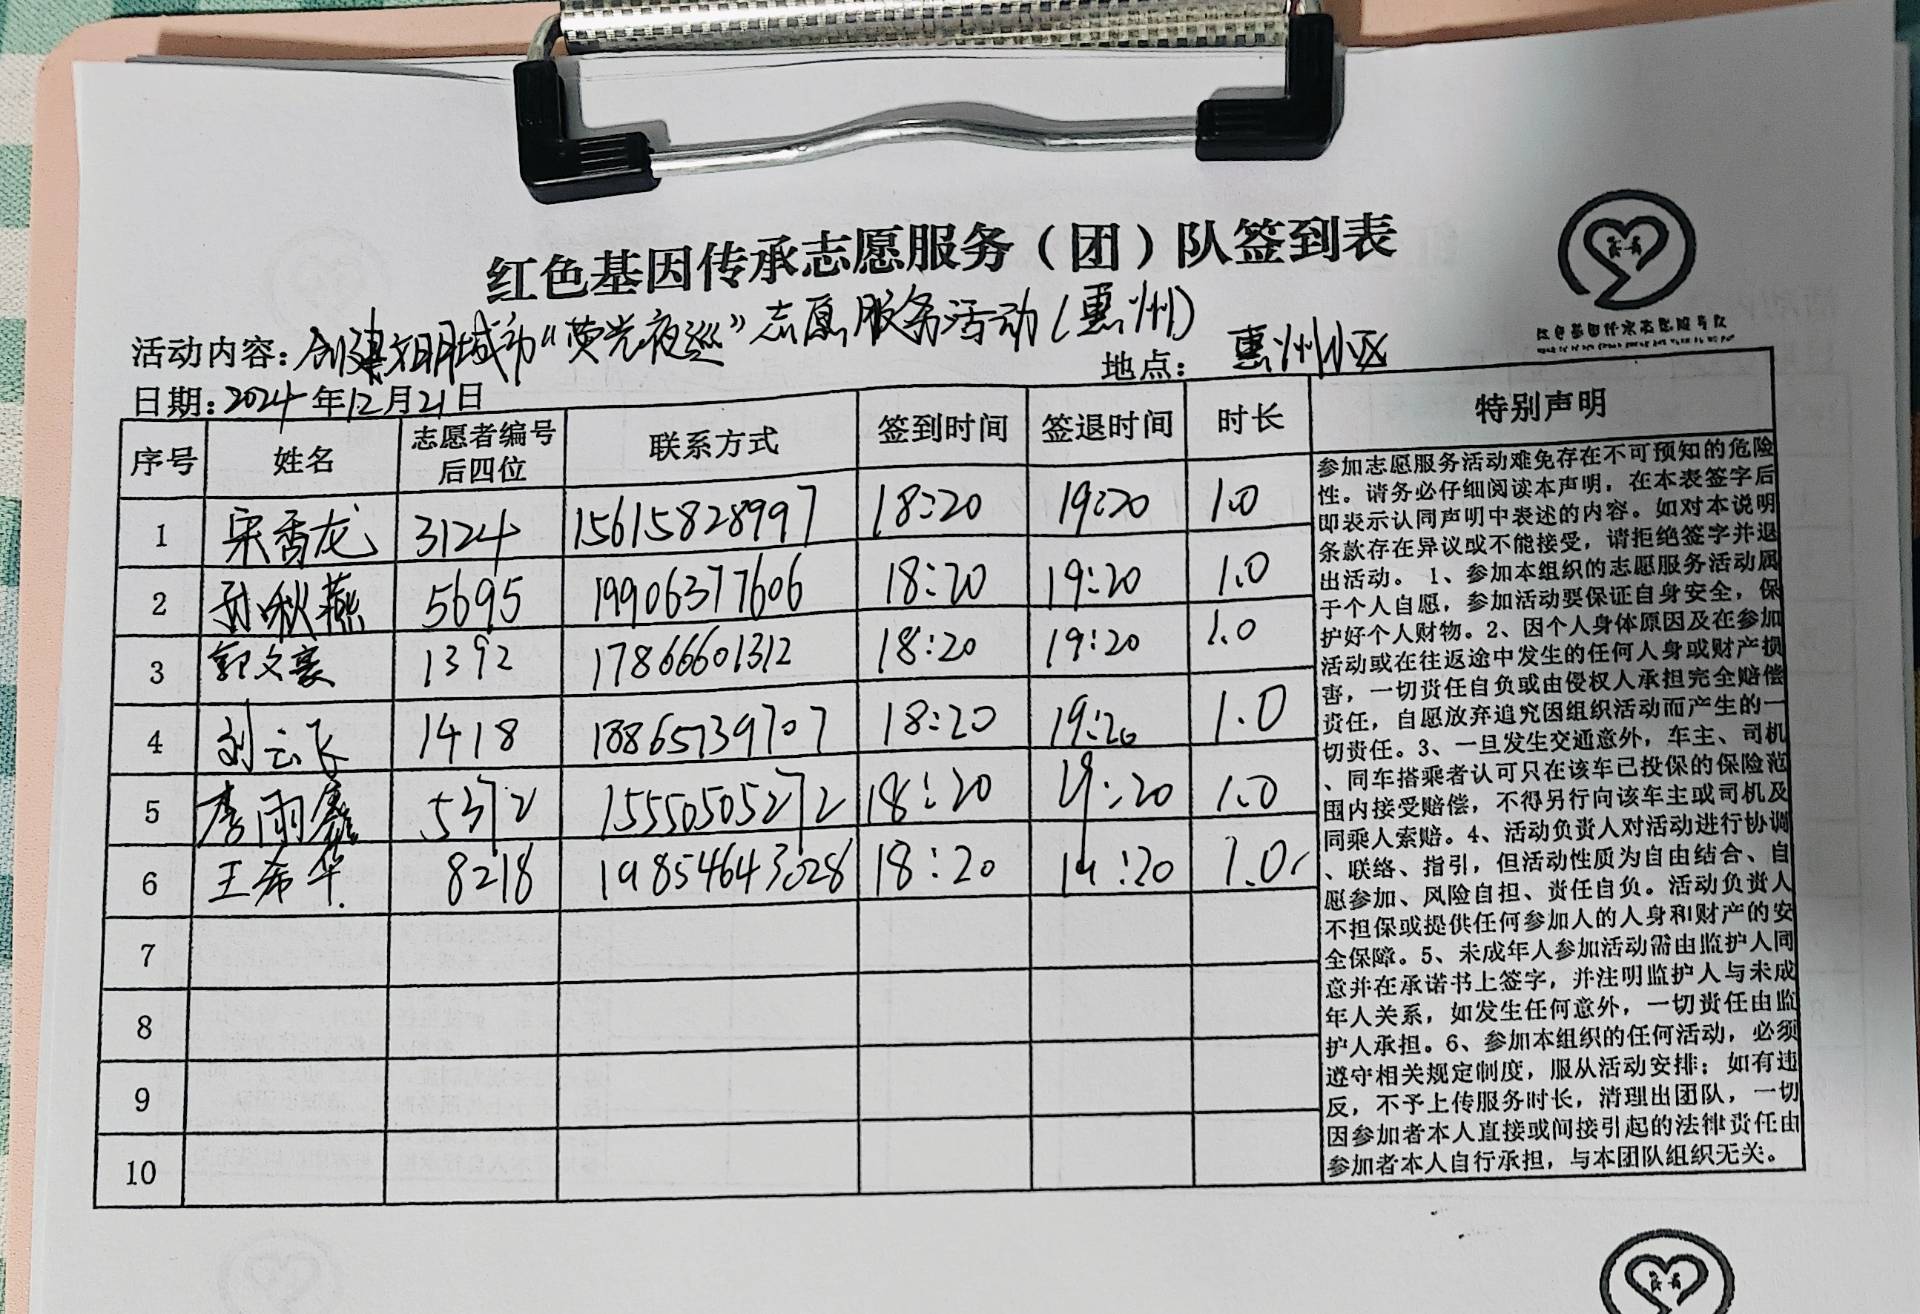 红色基因传承志愿服务（团）队签到表
活动内容：创建文明城市“荧光夜巡”志愿服务活动(惠州)
地点：惠州小区
日期：2024年12月21日
序号 姓名 志愿者编号后四位 联系方式 签到时间 签退时间 时长 特别声明
1 宋香龙 3124 15615828997 18:20 19:20 1.0
2 孙秋燕 5695 19906377606 18:20 19:20 1.0
3 郭文豪 1392 17866601312 18:20 19:20 1.0
4 刘云飞 1418 18865739707 18:20 19:20 1.0
5 李雨鑫 5372 15550505272 18:20 19:20 1.0
6 王希华 8218 19854643028 18:20 19:20 1.0
7
8
9
10
参加志愿服务活动难免存在不可预知的危险
性。请务必仔细阅读本声明，在本表签字后
即表示认同声明中表述的内容。如对本说明
条款存在异议或不能接受，请拒绝签字并退
出活动。 1、参加本组织的志愿服务活动属
于个人自愿，参加活动要保证自身安全，保
护好个人财物。2、因个人身体原因及在参加
活动或在往返途中发生的任何人身或财产损
害，一切责任自负或由侵权人承担完全赔偿
责任，自愿放弃追究因组织活动而产生的一
切责任。3、一旦发生交通意外，车主、司机
、同车搭乘者认可只在该车已投保的保险范
围内接受赔偿，不得另行向该车主或司机及
同乘人索赔。4、活动负责人对活动进行协调
、联络、指引，但活动性质为自由结合、自
愿参加、风险自担、责任自负。活动负责人
不担保或提供任何参加人的人身和财产的安
全保障。5、未成年人参加活动需由监护人同
意并在承诺书上签字，并注明监护人与未成
年人关系，如发生任何意外，一切责任由监
护人承担。6、参加本组织的任何活动，必须
遵守相关规定制度，服从活动安排；如有违
反，不予上传服务时长，清理出团队，一切
因参加者本人直接或间接引起的法律责任由
参加者本人自行承担，与本团队组织无关。